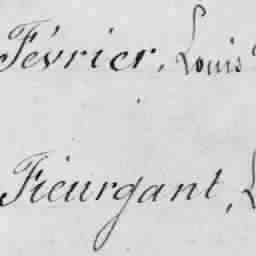 Février, Louis
Fieurgant, L